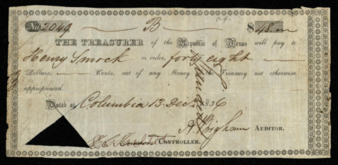 No 2049 B $48.00
THE TREASURER of the Republic of Texas will pay to
Henry Smock or order, forty eight
Dollars, Cents, out of any Money in the Treasury not otherwise
appropriated.
Dated at Columbia 13 Decr 1836
A Brigham AUDITOR.
CONTROLLER.